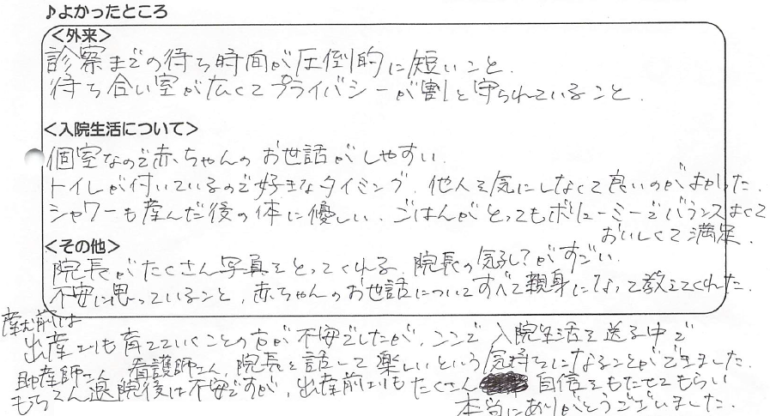 ♪よかったところ
<外来>
診察までの待ち時間が圧倒的に短いこと.
待ち合い室が広くてプライバシーが割と守られていること.
<入院生活について>
個室なので赤ちゃんのお世話がしやすい.
トイレが付いているので好きなタイミング. 他人を気にしなくて良いのがよかった.
シャワーも産んだ後の体に優しい. ごはんがとってもボリューミーでバランスよくて
おいしくて満足.
<その他>
院長がたくさん写真をとってくれる. 院長の
がすごい.
不安に思っていること, 赤ちゃんのお世話についてすべて親身になって教えてくれた.
産む前は
出産よりも育てていくことの方が不安でしたが, ここで入院生活を送る中で
助産師さん, 看護師さん, 院長と話して楽しいという気持ちになることができました.
もちろん退院後は不安ですが, 出産前よりもたくさん自信をもたせてもらい
本当にありがとうございました.